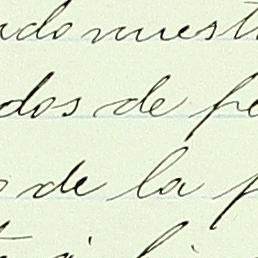 ado nuest
dos de fe
o de la p